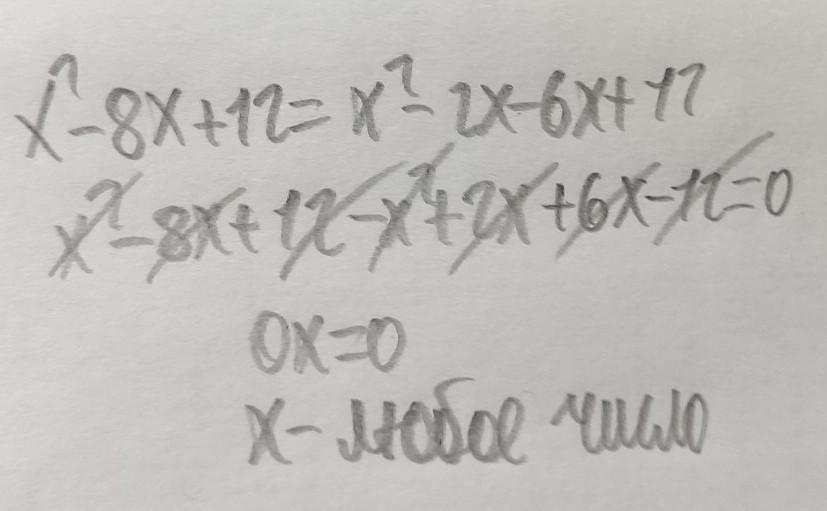 x² - 8x + 12 = x² - 2x - 6x + 12
x² - 8x + 12 - x² + 2x + 6x - 12 = 0
0x = 0
x - любое число